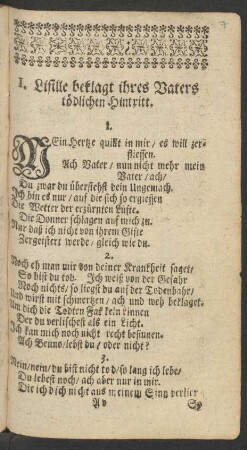 7
I. Lisille beklagt ihres Vaters
tödlichen Hintritt.
1.
MEin Hertze quillt in mir / es will zer-
fliessen.
Ach Vater / nun nicht mehr mein
Vater / ach /
Du zwar du überstehst dein Ungemach.
Ich bin es nur / auf die sich so ergiessen
Die Wetter der erzürnten Lüffte.
Die Donner schlagen auf mich zu.
Nur daß ich nicht von ihrem Giffte
Zergeistert werde / gleich wie du.
2.
Noch eh man mir von deiner Kranckheit saget /
So bist du tod. Ich weiß von der Gefahr
Noch nichts / so liegst du auf der Todenbahr /
Und wirst mit schmertzen / ach und weh beklaget.
Um dich die Todten Fackeln rinnen
Der du verlischest als ein Licht.
Ich kan mich noch nicht recht besinnen.
Ach Bruno / lebst du / oder nicht?
3.
Nein / nein / du bist nicht tod / so lang ich lebe /
Du lebest noch / ach aber nur in mir.
Die ich dich nicht aus meinem Sinn verlier
A v